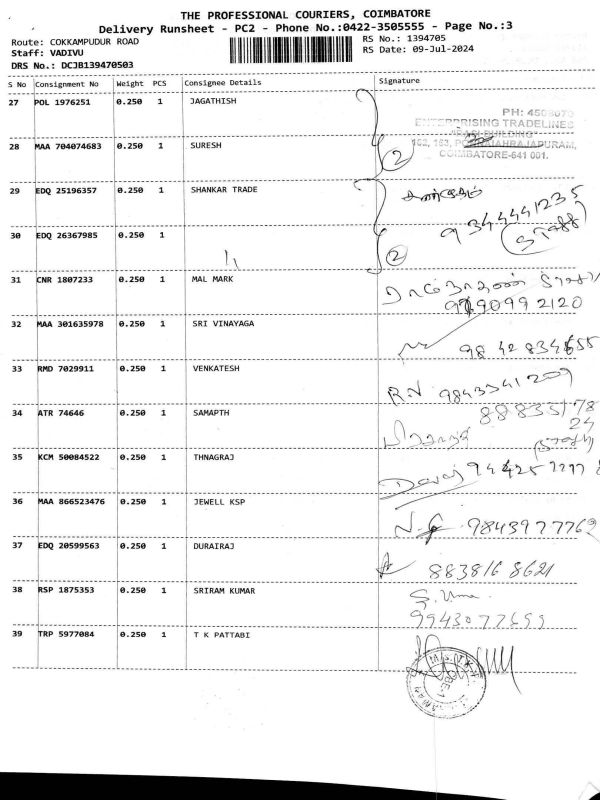 THE PROFESSIONAL COURIERS, COIMBATORE
Delivery Runsheet - PC2 - Phone No.:0422-3505555 - Page No.:3
Route: COKKAMPUDUR ROAD
RS No.: 1394705
Staff: VADIVU
RS Date: 09-Jul-2024
DRS No.: DCJB139470503
S No Consignment No Weight PCS Consignee Details Signature
27 POL 1976251 0.250 1 JAGATHISH
PH: 4503070
ENTERPRISING TRADELINES
28 MAA 704074683 0.250 1 SURESH
2
COIMBATORE-641 001.
29 EDQ 25196357 0.250 1 SHANKAR TRADE
9344441235
30 EDQ 26367985 0.250 1
2
31 CNR 1807233 0.250 1 MAL MARK
32 MAA 301635978 0.250 1 SRI VINAYAGA
33 RMD 7029911 0.250 1 VENKATESH
R.N 9843341209
34 ATR 74646 0.250 1 SAMAPTH
35 KCM 50084522 0.250 1 THNAGRAJ
36 MAA 866523476 0.250 1 JEWELL KSP
9843977762
37 EDQ 20599563 0.250 1 DURAIRAJ
8838168621
38 RSP 1875353 0.250 1 SRIRAM KUMAR
S. Uma
9943077699
39 TRP 5977084 0.250 1 T K PATTABI